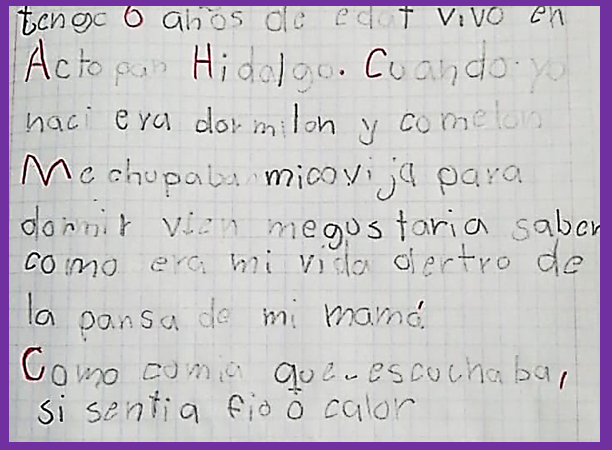 tengo 6 años de edat vivo en
Actopan Hidalgo. Cuando yo
naci era dormilon y comelon
Me chupaba micovija para
dormir vien megustaria saber
como era mi vida dertro de
la pansa de mi mamá.
Como comia que-escuchaba,
si sentia fio ò calor